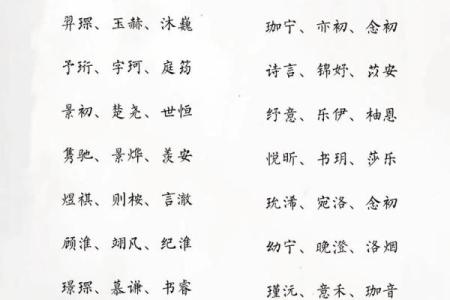 羿琛、玉赫、沐巍
珈宁、亦初、念初
予珩、宇珂、庭筠
诗言、锦妤、苡安
景初、楚尧、世恒
纾意、乐伊、柚恩
隽驰、景烨、羡安
悦昕、书玥、莎乐
煜祺、则桉、言澈
玧浠、宛洛、念初
顾淮、翊凡、纪淮
幼宁、晚澄、洛烟
璟琛、慕谦、书睿
瑾沅、意禾、珈音